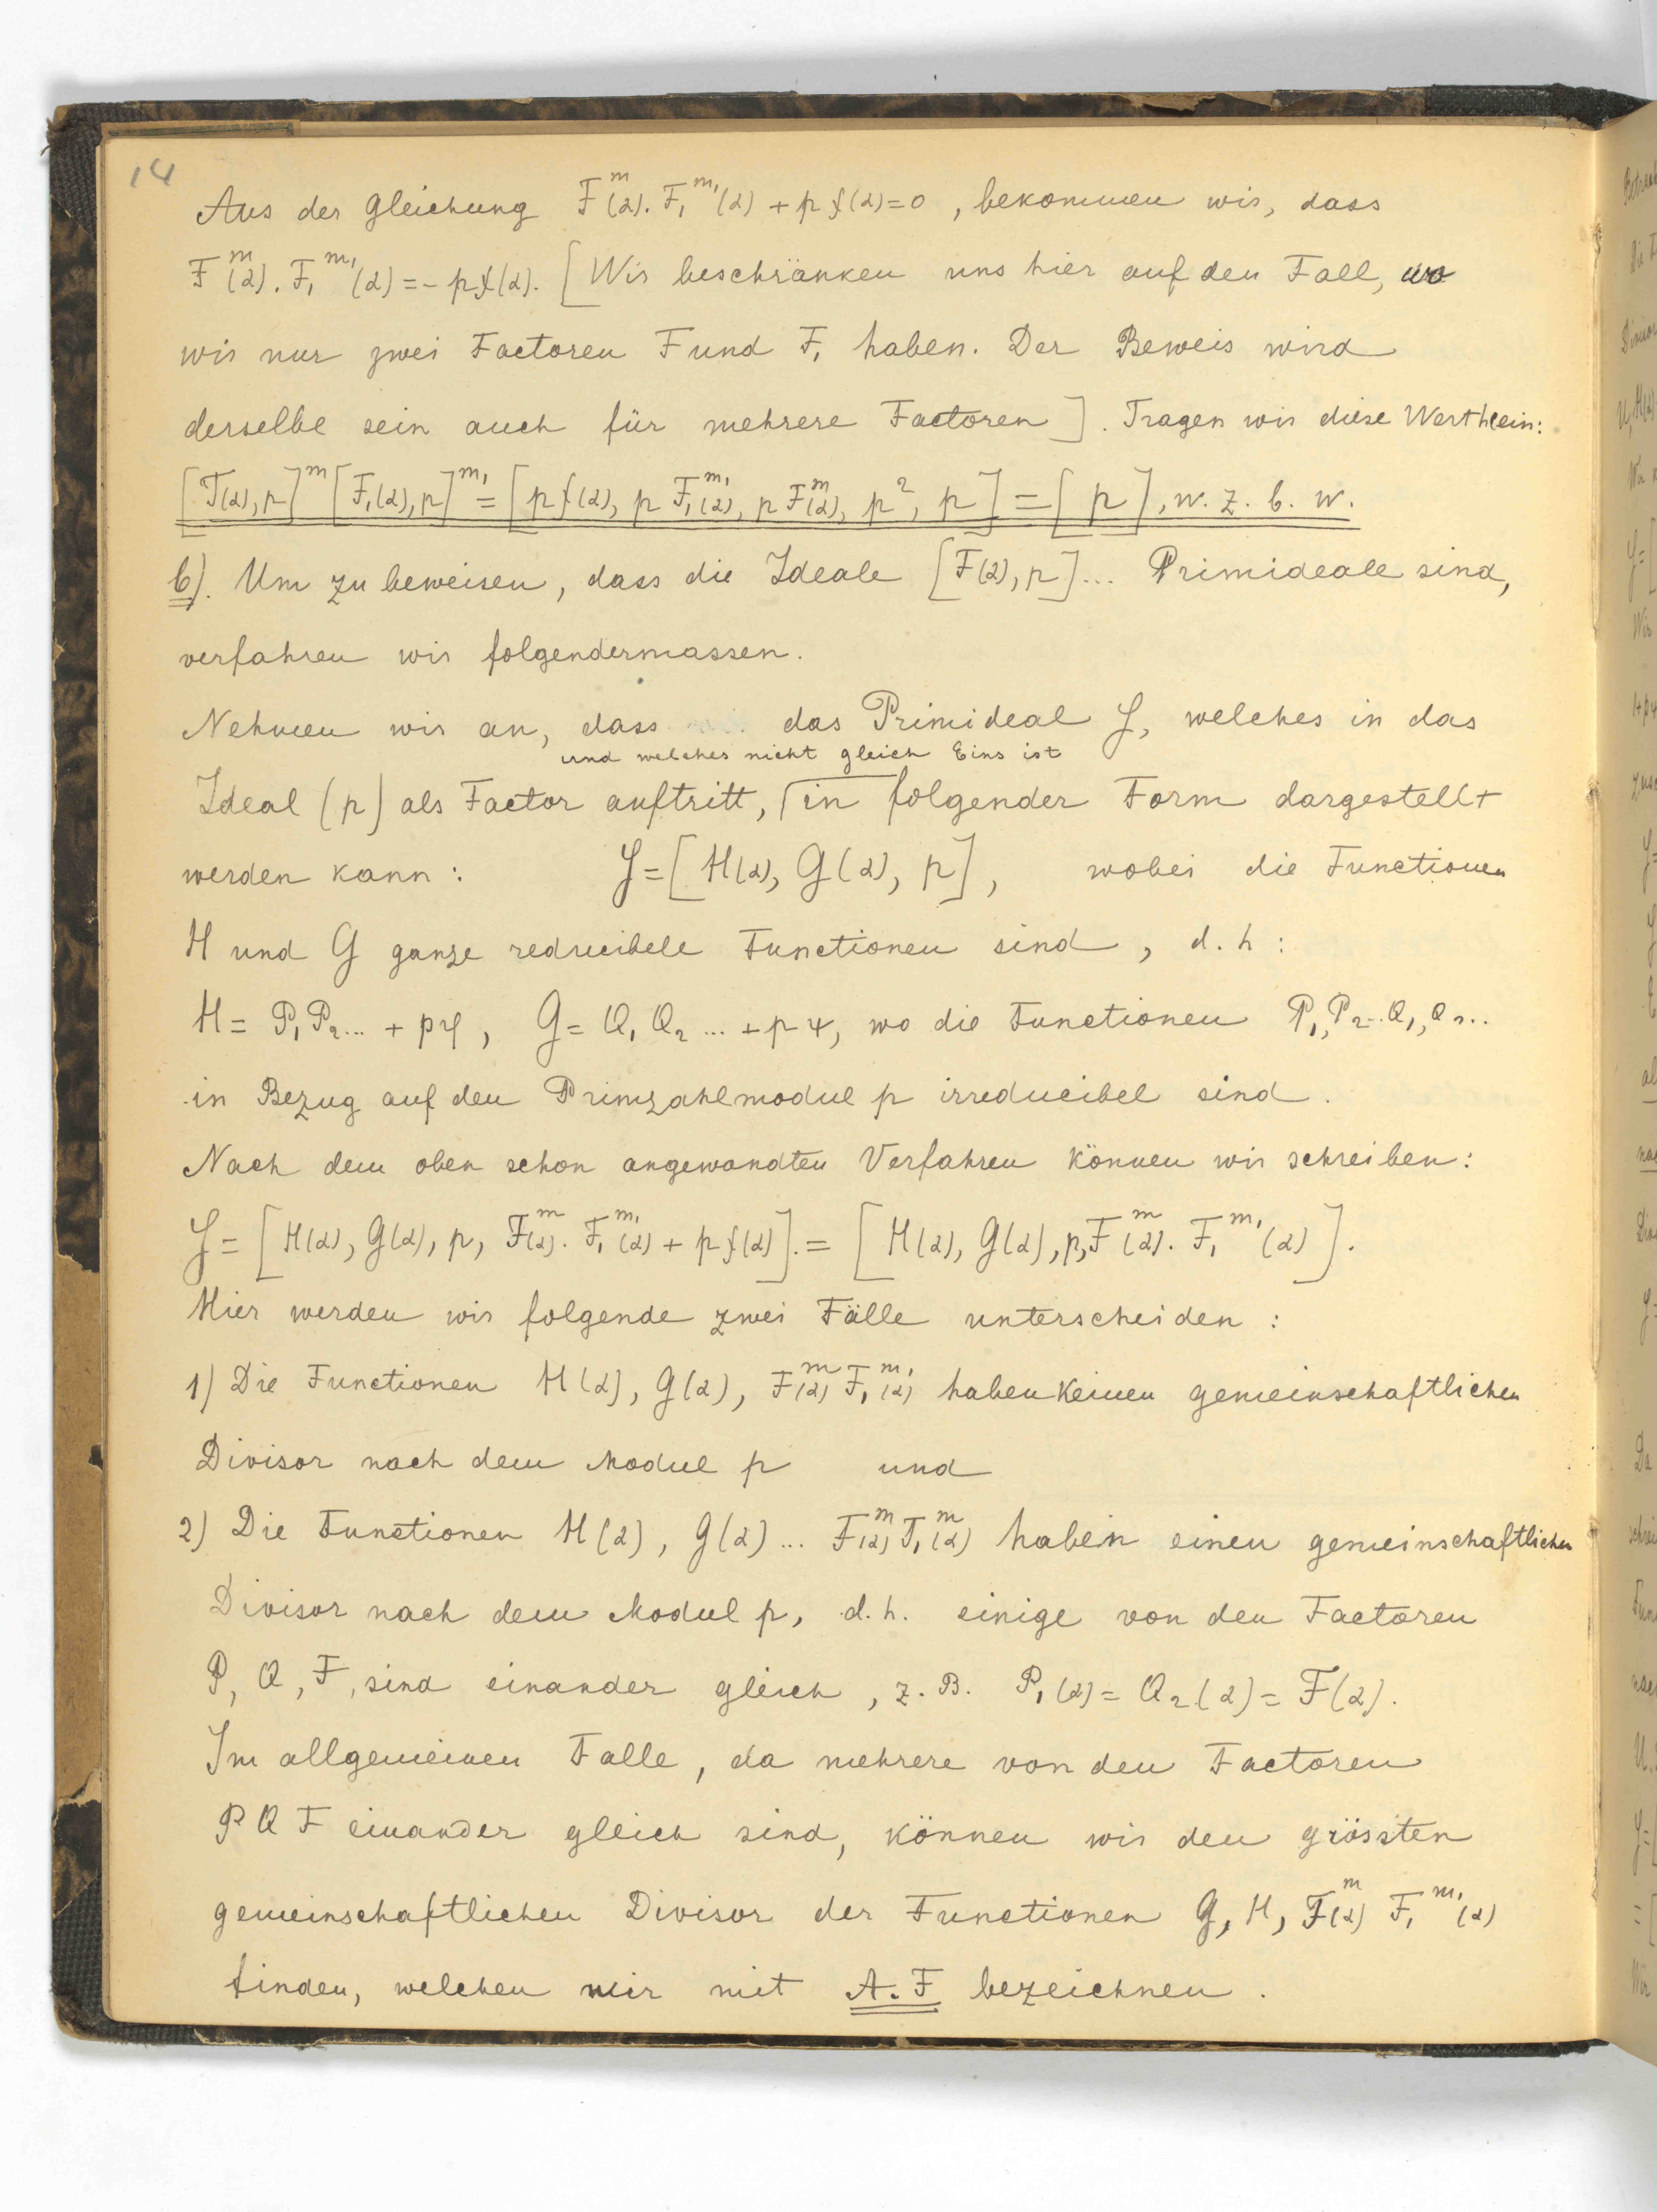 14
Aus der Gleichung F^m(α). F₁^m₁(α) + p f(α) = 0, bekommen wir, dass
F^m(α). F₁^m₁(α) = - p f(α). [Wir beschränken uns hier auf den Fall, wo
wir nur zwei Factoren F und F₁ haben. Der Beweis wird
derselbe sein auch für mehrere Factoren]. Tragen wir diese Werthe ein:
[F(α), p]^m [F₁(α), p]^m₁ = [p f(α), p F₁^m₁(α), p F^m(α), p², p] = [p], w. z. b. w.
b). Um zu beweisen, dass die Ideale [F(α), p]... Primideale sind,
verfahren wir folgendermassen.
Nehmen wir an, dass das Primideal J, welches in das
und welches nicht gleich Eins ist
Ideal (p) als Factor auftritt, in folgender Form dargestellt
werden kann: J = [H(α), G(α), p], wobei die Functionen
H und G ganze reducibele Functionen sind, d. h:
H = P₁ P₂ ... + p φ, G = Q₁ Q₂ ... + p ψ, wo die Functionen P₁, P₂... Q₁, Q₂...
in Bezug auf den Primzahlmodul p irreducibel sind.
Nach dem oben schon angewandten Verfahren können wir schreiben:
J = [H(α), G(α), p, F^m(α). F₁^m₁(α) + p f(α)]. = [H(α), G(α), p, F^m(α). F₁^m₁(α)].
Hier werden wir folgende zwei Fälle unterscheiden:
1) Die Functionen H(α), G(α), F^m(α) F₁^m₁(α) haben keinen gemeinschaftlichen
Divisor nach dem Modul p und
2) Die Functionen H(α), G(α) ... F^m(α) F₁^m(α) haben einen gemeinschaftlichen
Divisor nach dem Modul p, d. h. einige von den Factoren
P, Q, F, sind einander gleich, z. B. P₁(α) = Q₂(α) = F(α).
Im allgemeinen Falle, da mehrere von den Factoren
P Q F einander gleich sind, können wir den grössten
gemeinschaftlichen Divisor der Functionen G, H, F^m(α) F₁^m₁(α)
finden, welchen wir mit A. F bezeichnen.